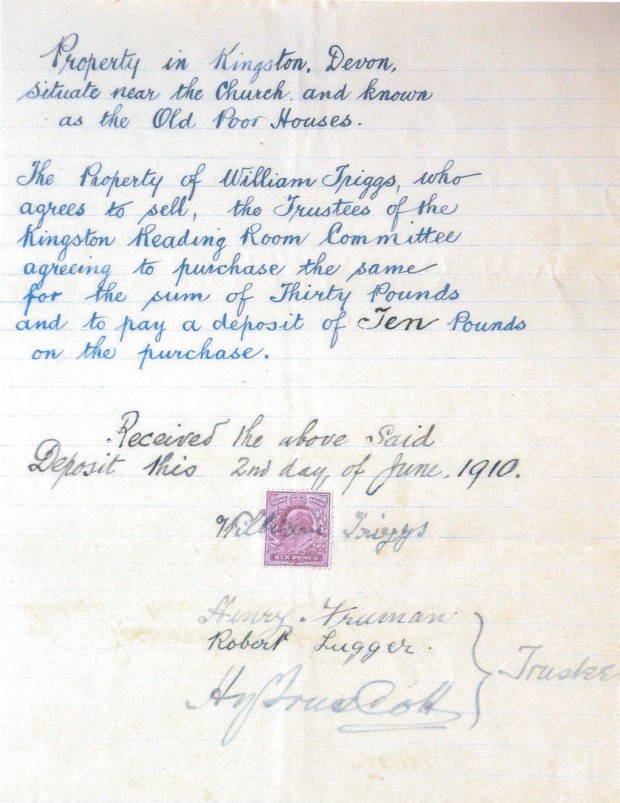 Property in Kingston, Devon,
situate near the Church, and known
as the Old Poor Houses.
The Property of William Triggs, who
agrees to sell, the Trustees of the
Kingston Reading Room Committee
agreeing to purchase the same
for the sum of Thirty Pounds
and to pay a deposit of Ten Pounds
on the purchase.
Received the above Said
Deposit this 2nd day of June. 1910.
William Triggs
SIX PENCE
Henry Truman
Robert Lugger.
Hy Truscott
Trustee